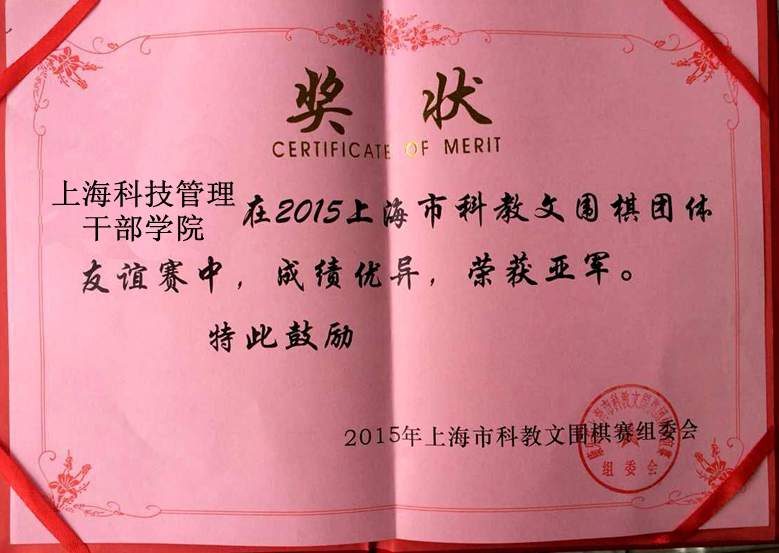 奖状
CERTIFICATE OF MERIT
上海科技管理
干部学院
在2015上海市科教文围棋团体
友谊赛中，成绩优异，荣获亚军。
特此鼓励
2015年上海市科教文围棋赛组委会
组委会